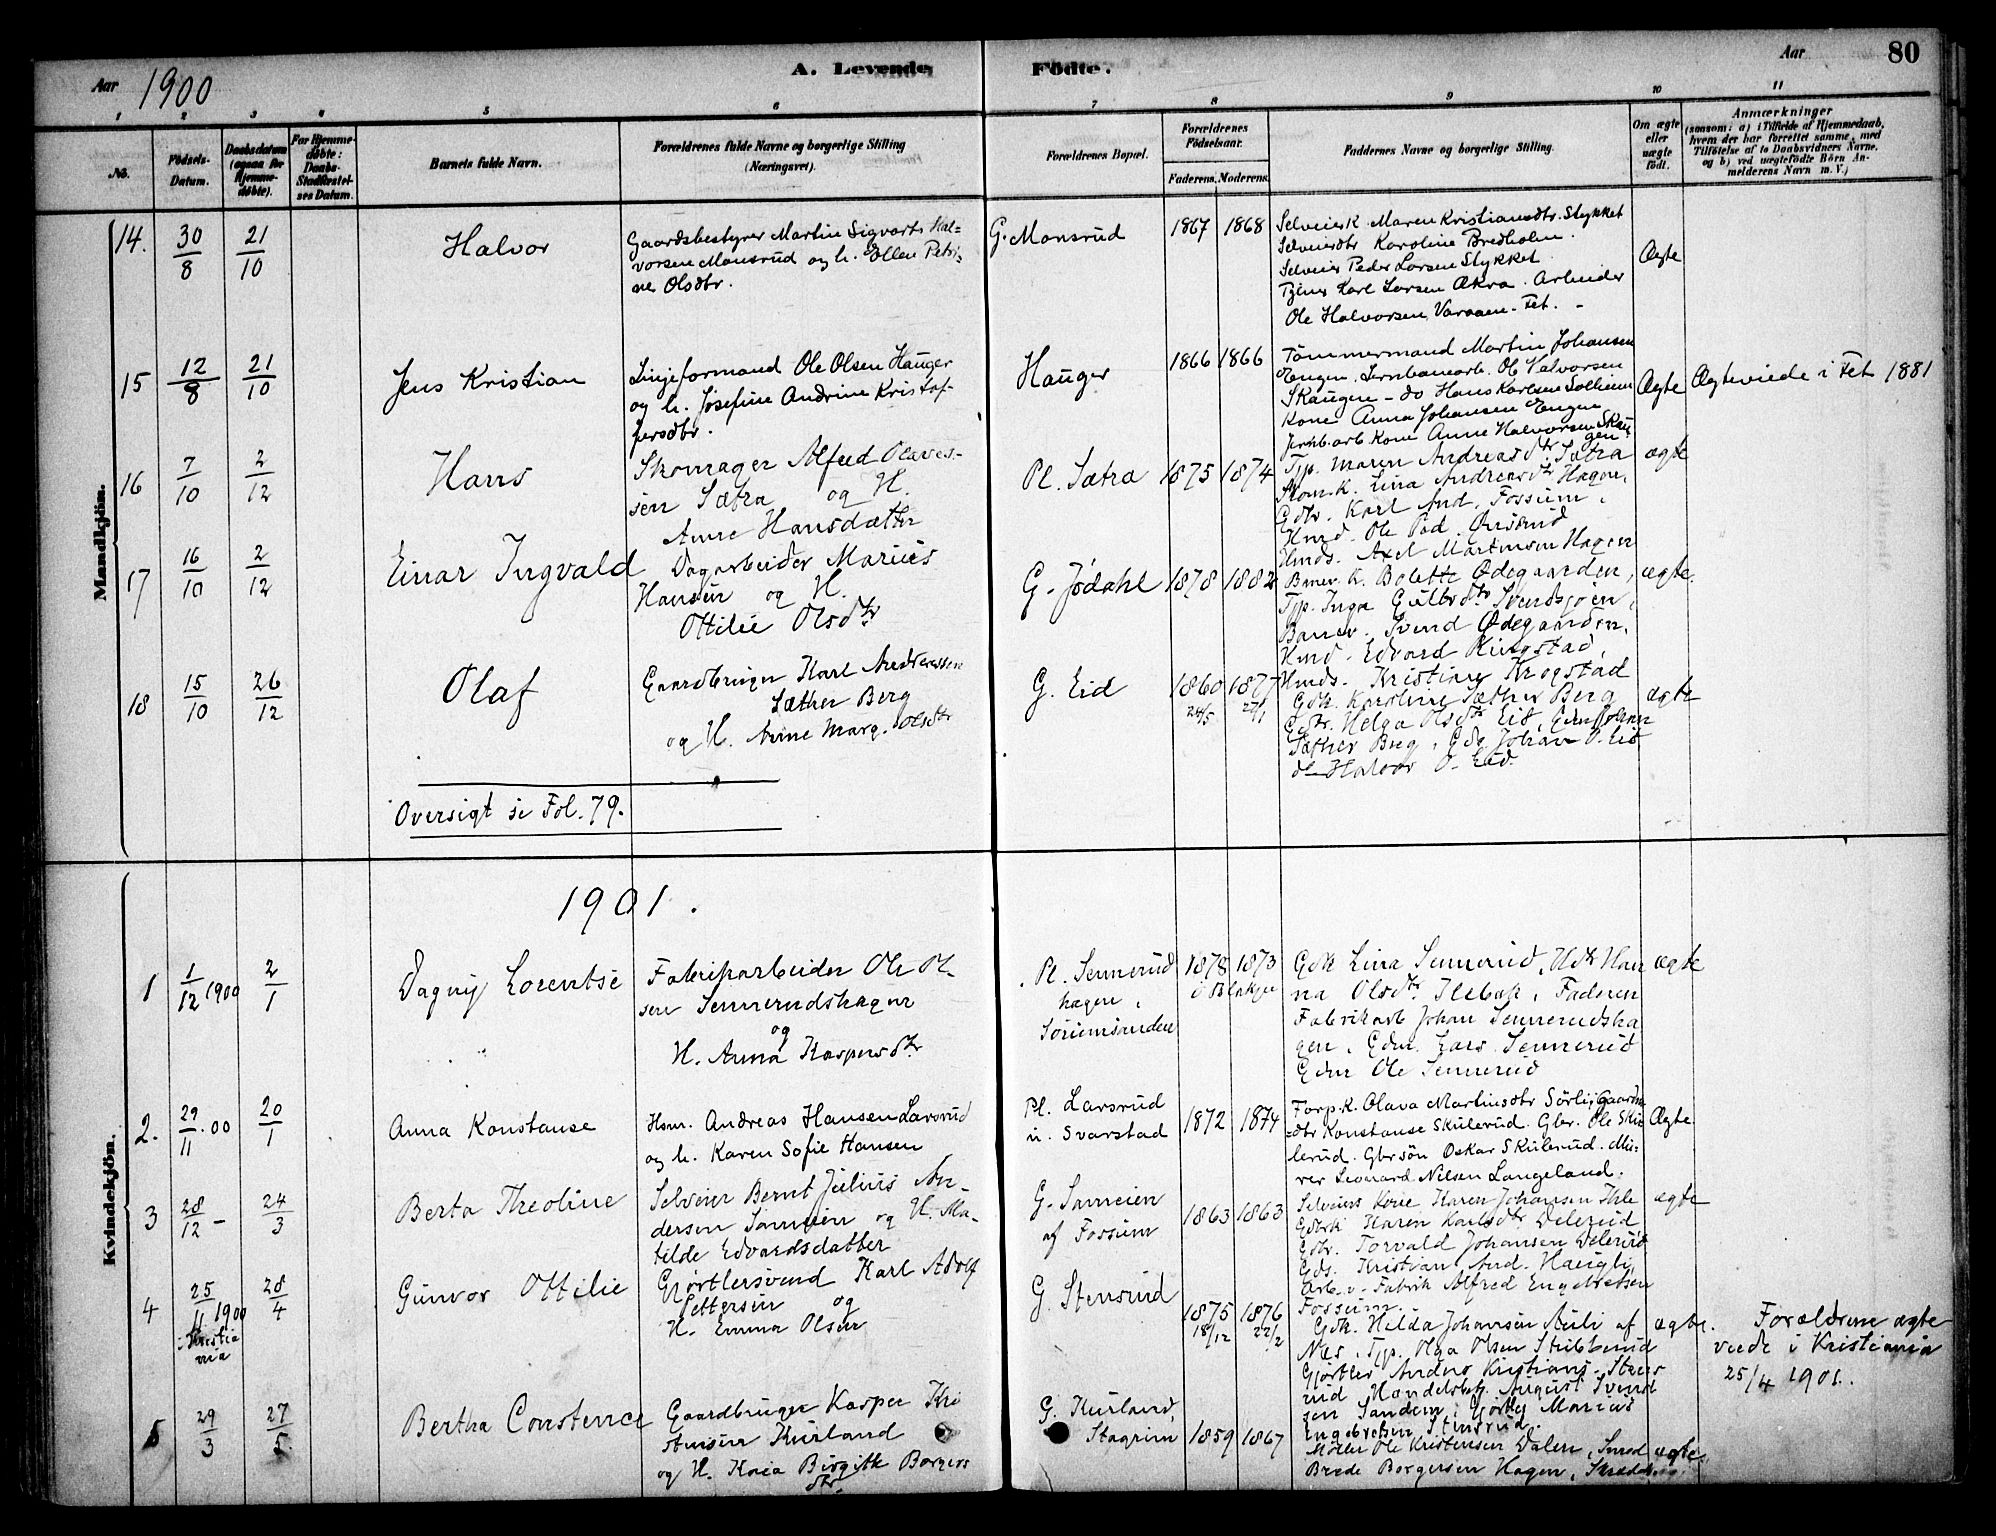 Aar 1900
A. Levende Födte.
Aar 80
1 2 3 4 5 6 7 8 9 10 11
No.
Födsels-Datum.
Daabsdatum (ogsaa for Hjemme-døbte).
For Hjemme-døbte: Daabs-Stadfæstel-ses Datum.
Barnets fulde Navn.
Forældrenes fulde Navne og borgerlige Stilling (Næringsvei).
Forældrenes Bopæl.
Forældrenes Födselsaar.
Faderens. Moderens.
Faddernes Navne og borgerlige Stilling.
Om ægte eller uægte født.
Anmærkninger
(saasom: a) i Tilfælde af Hjemmedaab, hvem der har forrettet samme, med Tilføielse af to Daabsvidners Navne, og b) ved uægtefødte Börn An-melderens Navn m. V.)
Mandkjön.
14. 30/8 21/10 Halvor
Gaardsbestyrer Martin Sigvarts Hal-
vorsen Monsrud og h. Ellen Petri-
ne Olsdtr.
G. Monsrud 1867 1868
Selveierk. Maren Kristiansdtr. Stykket
Selveierdtr Karoline Bredholm.
Selveier Peder Larsen Stykket
Tjener Karl Larsen Økra. Arbeider
Ole Halvorsen Varaaen - Fet. -
Ægte
15 12/8 21/10 Jens Kristian
Linjeformand Ole Olsen Hauger
og h. Josefine Andrine Kristof-
fersdtr.
Hauger 1866 1866
Tömmermand Martin Johansen
Engen. Jernbanearb. Ol Halvorsen
Skaugen - do Hans Karlsen Solheim
Kone Anna Johansen Engen
Jernb.arb Kone Anne Halvorsen Skau-
gen
Ægte Ægteviede i Fet 1881
16 7/10 2/12 Hans
Skomager Alfred Olaves-
sen Sætra og H.
Anne Hansdatter
Pl. Sætra 1875 1874
Tjp. Maren Andreasdtr. Sætra
Skom.k. Lina Andreasdtr Hagen,
Gdbr. Karl And. Fossum,
Hmd. Ole Ped.
Hmds. Axel Martinsen Hagen
ægte
17 16/10 2/12 Einar Ingvald
Dagarbeider Marius
Hansen og H.
Ottilie Olsdtr
G. Jödahl 1878 1882
Banev. K. Bolette Ödegaarden,
Tjp. Inga Gulbrdtr Svendsjoen,
Banev. Svend Ödegaarden,
Hmd. Edvard Ringstad,
Hmds. Kristian Krogstad
ægte.
18 15/10 26/12 Olaf
Gaardbruger Karl Andreassen
Sæther Berg
og H. Anne Marg. Olsdtr
G. Eid 1860 24/5 1877 27/1
Gdk. Karoline Sæther Berg
Gdtr. Helga Olsdtr Eid, Gdm Johan
Sæther Berg, Gdg Johan O. Eid
do Halvor O. Eid.
ægte
Oversigt se Fol. 79.
Kvindekjön.
1901.
1 1/12 1900 2/1 Dagny Lorentse
Fabrikarbeider Ole Ol-
sen Sennerudshagen
og
H. Anna Kaspersdtr
Pl. Sennerud
hagen,
Sörumsanden
1878 1873
i Blakjer
Gdk Lina Sennerud, Hdtr Han
na Olsdtr Ilebak, Faderen
Fabrikarb Johan Sennerudsha
gen, Gdm. Lars Sennerud
Gdm Ole Sennerud
ægte
2. 29/11.00 20/1 Anna Konstanse
Hsm. Andreas Hansen Larsrud
og h. Karen Sofie Hansen
Pl. Larsrud
u. Svarstad
1872 1874
Forp.k. Olava Martinsdtr Sörlie, Gaardm
dtr Konstanse Skulerud. Gbr. Ole Sku
lerud. Gbrsön Oskar Skulerud. Mu-
rer Leonard Nilsen Langeland.
Ægte.
3 28/12 - 24/3 Berta Theoline
Selveier Bernt Julius An-
dersen Sameien og H. Ma-
tilde Edvardsdatter
G. Sameien
af Fossum
1863 1863
Selveiers Kone Karen Johansen Ihle
Gdbrk Karen Karlsdtr Delerud
Gdbr. Torvald Johansen Delerud
Gds. Kristian And. Haugli,
Arb. v. Fabrik Alfred Engebretsen
Fossum.
ægte
4 25/11 1900 i Kristiania 28/4 Gunvor Ottilie
Gjørtlersvend Karl Adolf
Pettersen og
H. Emma Olsen
G. Stensrud
1875 18/12 1876 22/2
Gdk. Hilda Johansen Auli af
Næs, Tjp. Olga Olsen Stubberud
Gjørtler Anders Kristians. Stens
rud, Handelsbetj. August Svend
sen Sandem, Gjørtler Marius
Engebretsen Stensrud.
ægte. Forældrene ægte
viede i Kristiania
25/4 1901.
5 29/3 27/5 Bertha Constence
Gaardbruger Kasper Kri
stensen Hurland
og H. Karia Birgitte Borgers
dtr.
G. Hurland,
1859 1867
Møller Ole Kristensen Dalen, Smed
Brede Borgersen Hagen,
ægte